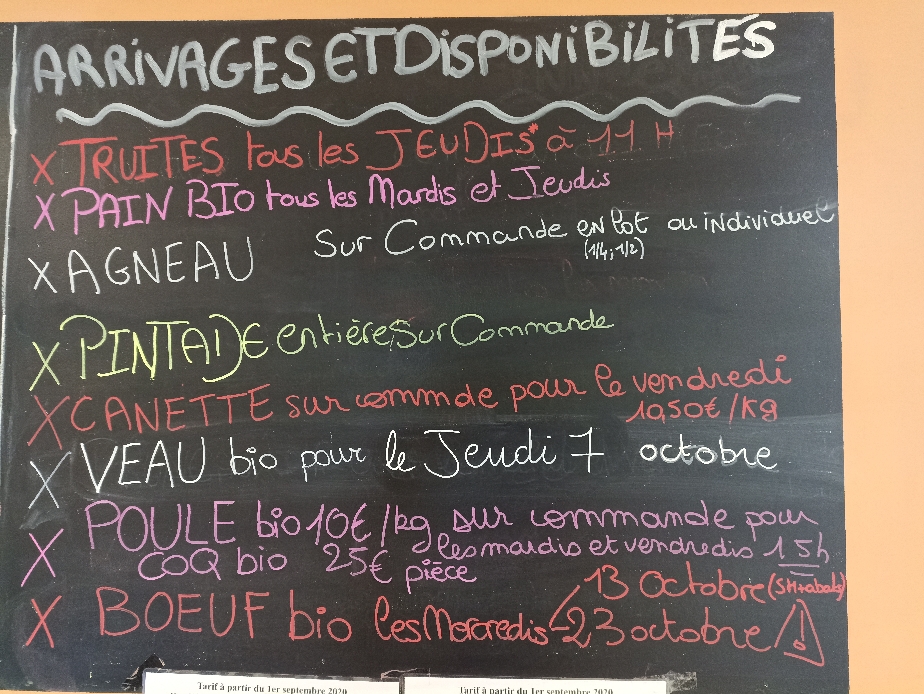 ARRIVAGES ET DISPONIBILITES
X TRUITES tous les JEUDIS* à 11 H
X PAIN BIO tous les Mardis et Jeudis
X AGNEAU Sur Commande en lot ou individuel
(1/4; 1/2)
X PINTADE entière Sur Commande
X CANETTE sur commde pour le vendredi
10,50€/Kg
X VEAU bio pour le Jeudi 7 octobre
X POULE bio 10€/kg sur commande pour
les mardis et vendredis 15h
COQ bio 25€ pièce
13 Octobre (SH+abats)
X BOEUF bio les Mercredis 23 octobre /!\
Tarif à partir du 1er septembre 2020
Tarif à partir du 1er septembre 2020